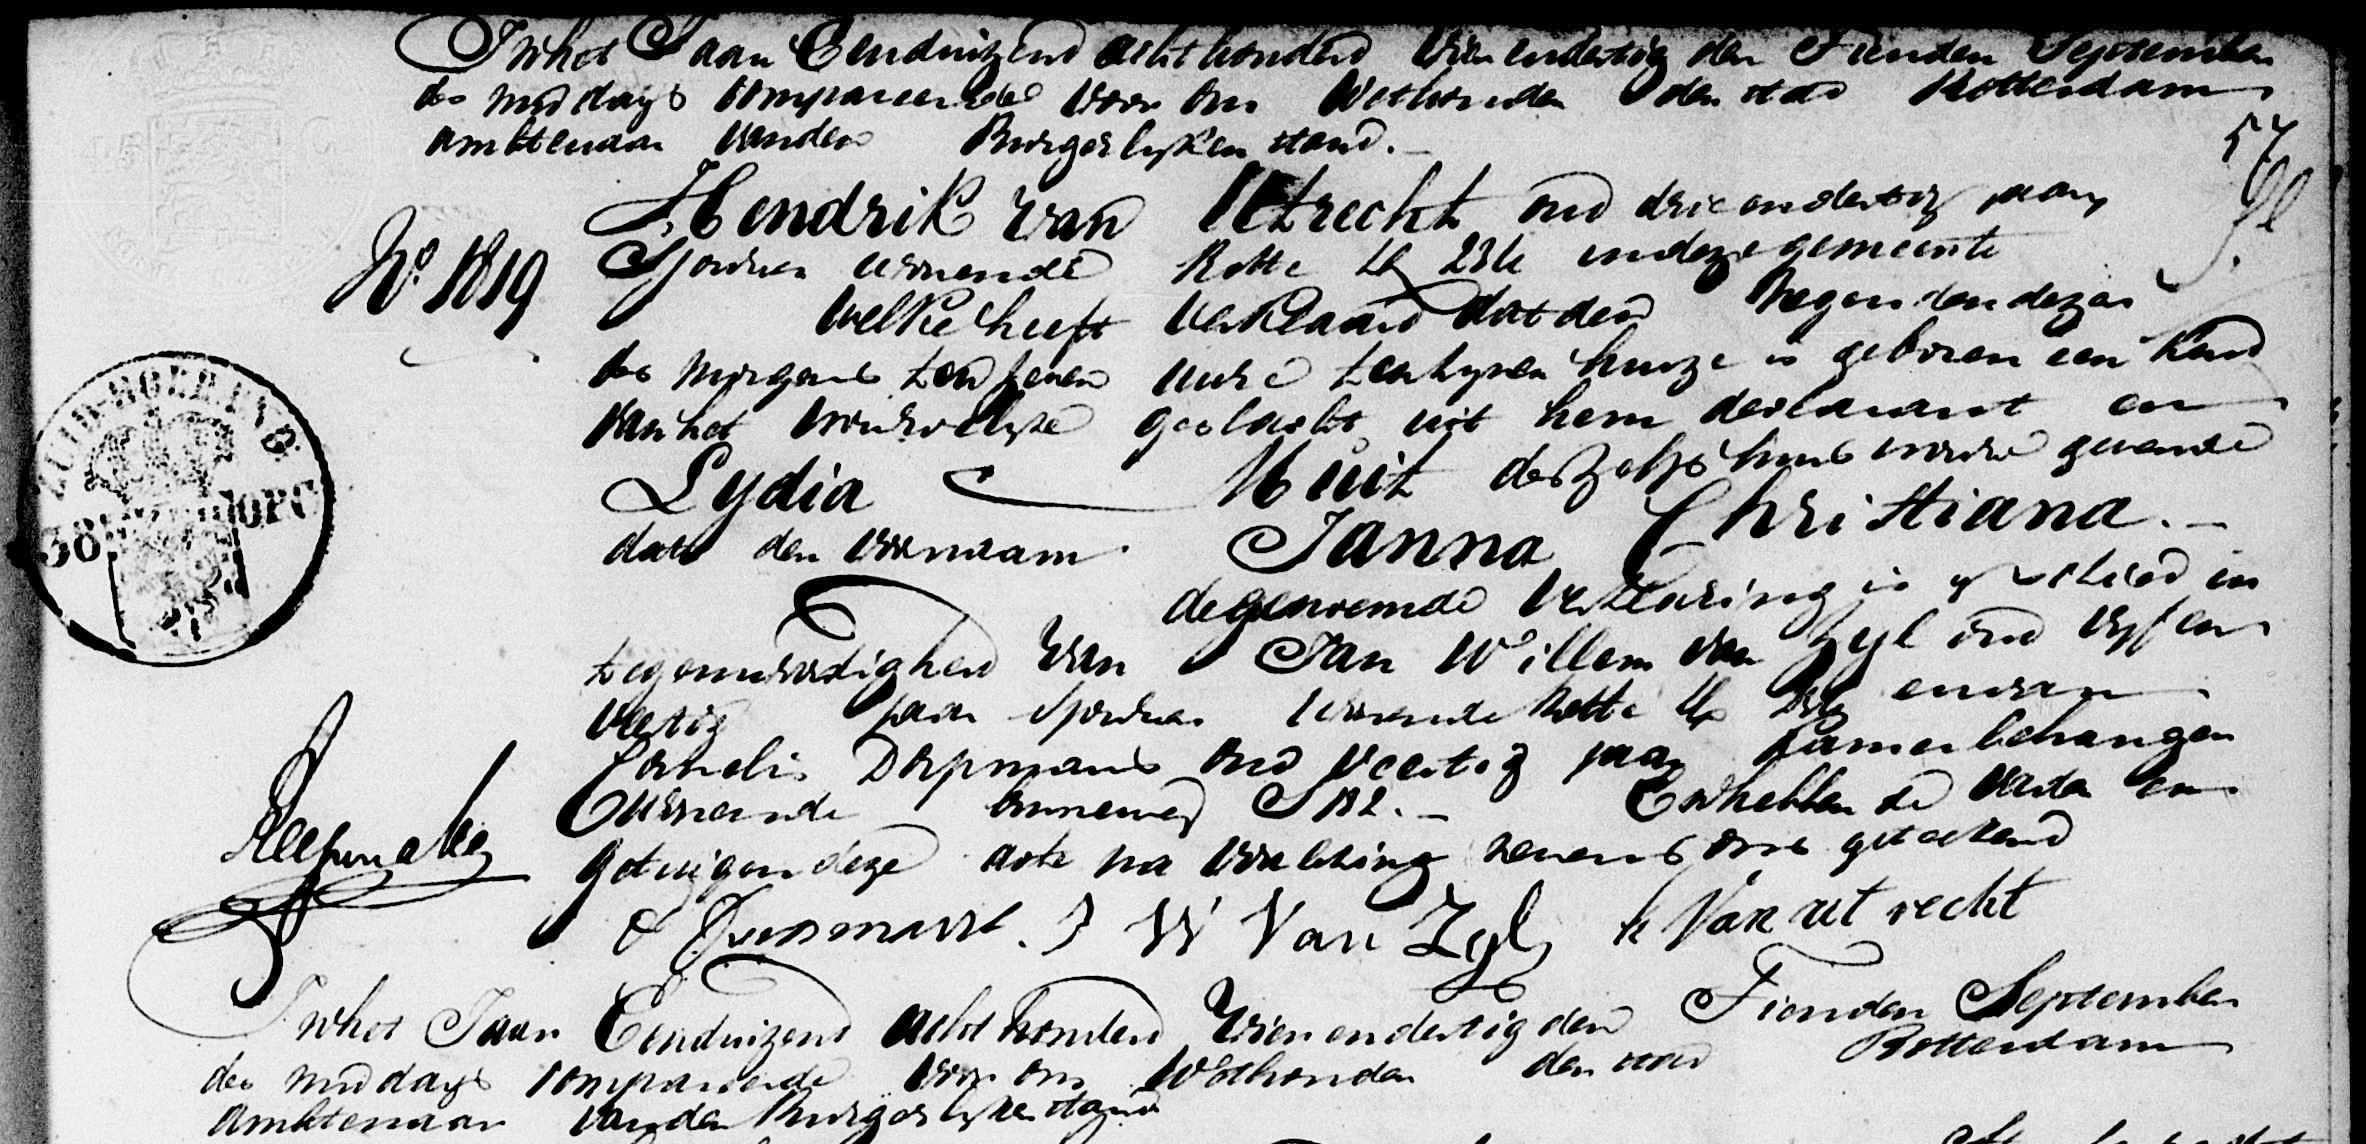 In het Jaar Eenduizend achthonderd vier en dertig den Tienden September
des middags compareerde voor ons Wethouder der stad Rotterdam
ambtenaar van den Burgerlyken stand.
57
Hendrik van Utrecht oud drie en dertig jaar
No. 1819
Sjouwer wonende Rotte in deze gemeente
welke heeft verklaard dat den Negenden dezer
des morgens ten zeven ure ten zynen huize is geboren een kind
van het vrouwelyke geslacht uit hem declarant en
Lydia Muit deszelfs huisvrouw gevende
ZUID-HOLLAND
38
dat den voornaam Janna Christiana.
de genoemde verklaring is geschied in
tegenwoordigheid van Jan Willem van Zyl oud vyf en
veertig jaar Sjouwer wonende Rotte en van
Cornelis Dorpmans oud veertig jaar kamerbehanger
wonende En hebben de vader en
getuigen deze acte na voorlezing nevens ons geteekend
J W Van Zyl h Van ut recht
In het Jaar Eenduizend achthonderd vier en dertig den Tienden September
des middags compareerde voor ons Wethouder der stad Rotterdam
ambtenaar van den Burgerlyken stand